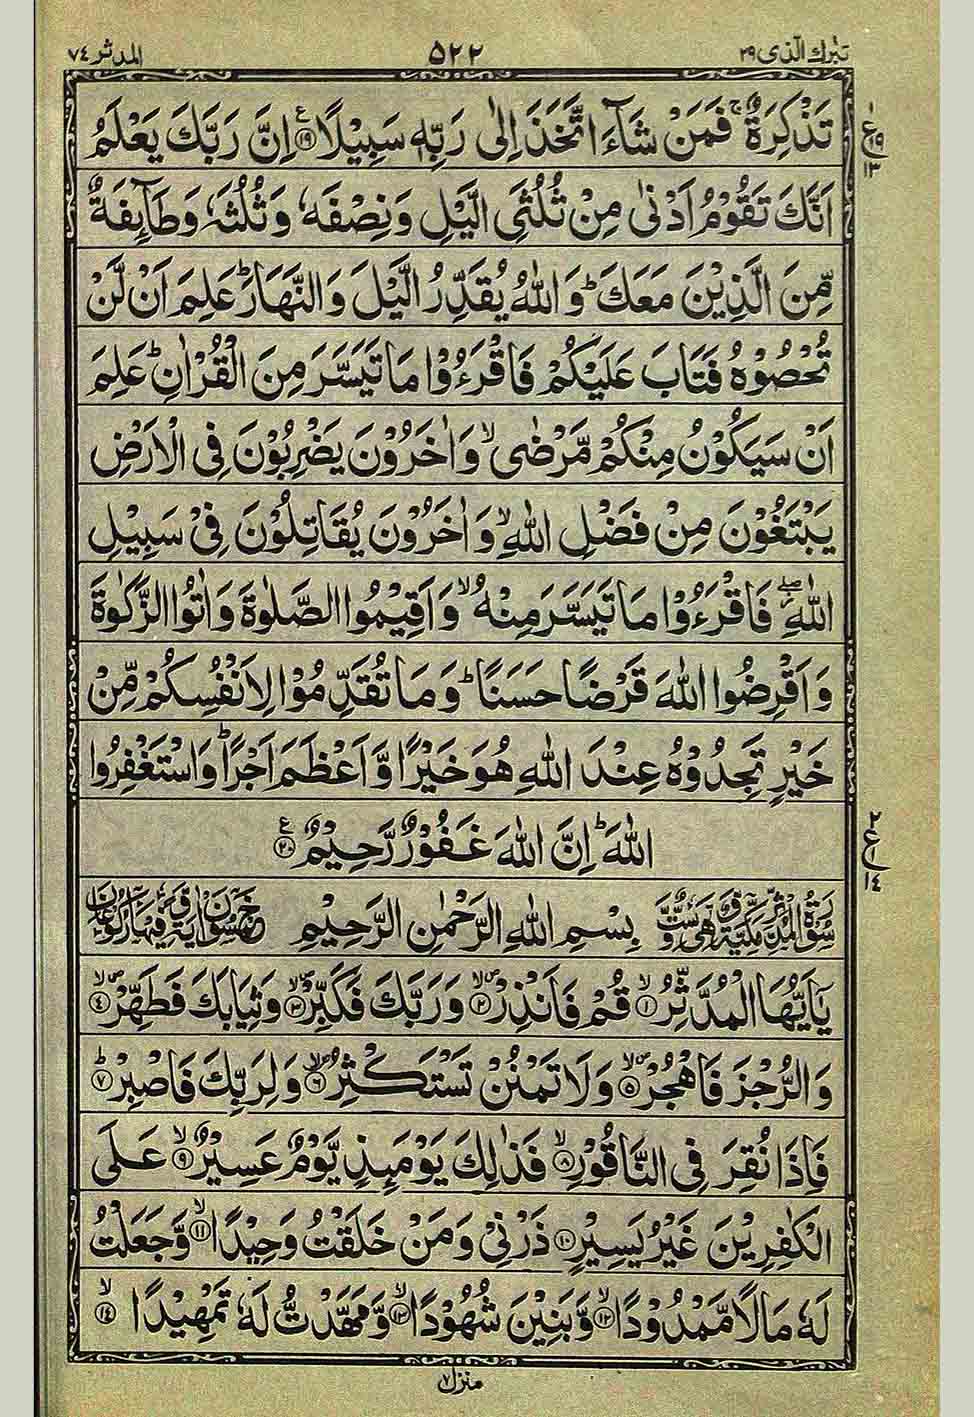 تبٰرك الّذی ٢٩ ٥٢٢ المدثر ٧٤
تَذْكِرَةٌ ۚ فَمَنْ شَآءَ اتَّخَذَ اِلٰى رَبِّهٖ سَبِيْلًا ۟﴿١٩﴾ اِنَّ رَبَّكَ يَعْلَمُ
اَنَّكَ تَقُوْمُ اَدْنٰى مِنْ ثُلُثَىِ الَّيْلِ وَنِصْفَهٗ وَثُلُثَهٗ وَطَآىِٕفَةٌ
مِّنَ الَّذِيْنَ مَعَكَ ؕ وَاللّٰهُ يُقَدِّرُ الَّيْلَ وَالنَّهَارَ ؕ عَلِمَ اَنْ لَّنْ
تُحْصُوْهُ فَتَابَ عَلَيْكُمْ فَاقْرَءُوْا مَا تَيَسَّرَ مِنَ الْقُرْاٰنِ ؕ عَلِمَ
اَنْ سَيَكُوْنُ مِنْكُمْ مَّرْضٰى ۙ وَاٰخَرُوْنَ يَضْرِبُوْنَ فِى الْاَرْضِ
يَبْتَغُوْنَ مِنْ فَضْلِ اللّٰهِ ۙ وَاٰخَرُوْنَ يُقَاتِلُوْنَ فِىْ سَبِيْلِ
اللّٰهِ ۖ فَاقْرَءُوْا مَا تَيَسَّرَ مِنْهُ ۙ وَاَقِيْمُوا الصَّلٰوةَ وَاٰتُوا الزَّكٰوةَ
وَاَقْرِضُوا اللّٰهَ قَرْضًا حَسَنًا ؕ وَمَا تُقَدِّمُوْا لِاَنْفُسِكُمْ مِّنْ
خَيْرٍ تَجِدُوْهُ عِنْدَ اللّٰهِ هُوَ خَيْرًا وَّاَعْظَمَ اَجْرًا ؕ وَاسْتَغْفِرُوا
اللّٰهَ ؕ اِنَّ اللّٰهَ غَفُوْرٌ رَّحِيْمٌ ﴿٢٠﴾
سورة المدثر مكية وهى ست و بِسْمِ اللّٰهِ الرَّحْمٰنِ الرَّحِيْمِ خمسون اية وفيها ركوعان
يٰۤاَيُّهَا الْمُدَّثِّرُ ۙ﴿١﴾ قُمْ فَاَنْذِرْ ۙ﴿٢﴾ وَرَبَّكَ فَكَبِّرْ ۙ﴿٣﴾ وَثِيَابَكَ فَطَهِّرْ ۙ﴿٤﴾
وَالرُّجْزَ فَاهْجُرْ ۙ﴿٥﴾ وَلَا تَمْنُنْ تَسْتَكْثِرُ ۙ﴿٦﴾ وَلِرَبِّكَ فَاصْبِرْ ؕ﴿٧﴾
فَاِذَا نُقِرَ فِى النَّاقُوْرِ ۙ﴿٨﴾ فَذٰلِكَ يَوْمَىِٕذٍ يَّوْمٌ عَسِيْرٌ ۙ﴿٩﴾ عَلَى
الْكٰفِرِيْنَ غَيْرُ يَسِيْرٍ ﴿١٠﴾ ذَرْنِىْ وَمَنْ خَلَقْتُ وَحِيْدًا ۙ﴿١١﴾ وَّجَعَلْتُ
لَهٗ مَالًا مَّمْدُوْدًا ۙ﴿١٢﴾ وَّبَنِيْنَ شُهُوْدًا ۙ﴿١٣﴾ وَّمَهَّدْتُّ لَهٗ تَمْهِيْدًا ۙ﴿١٤﴾
منزل ٧
١
ع
١٩
١٣
٢
ع
١
١٤